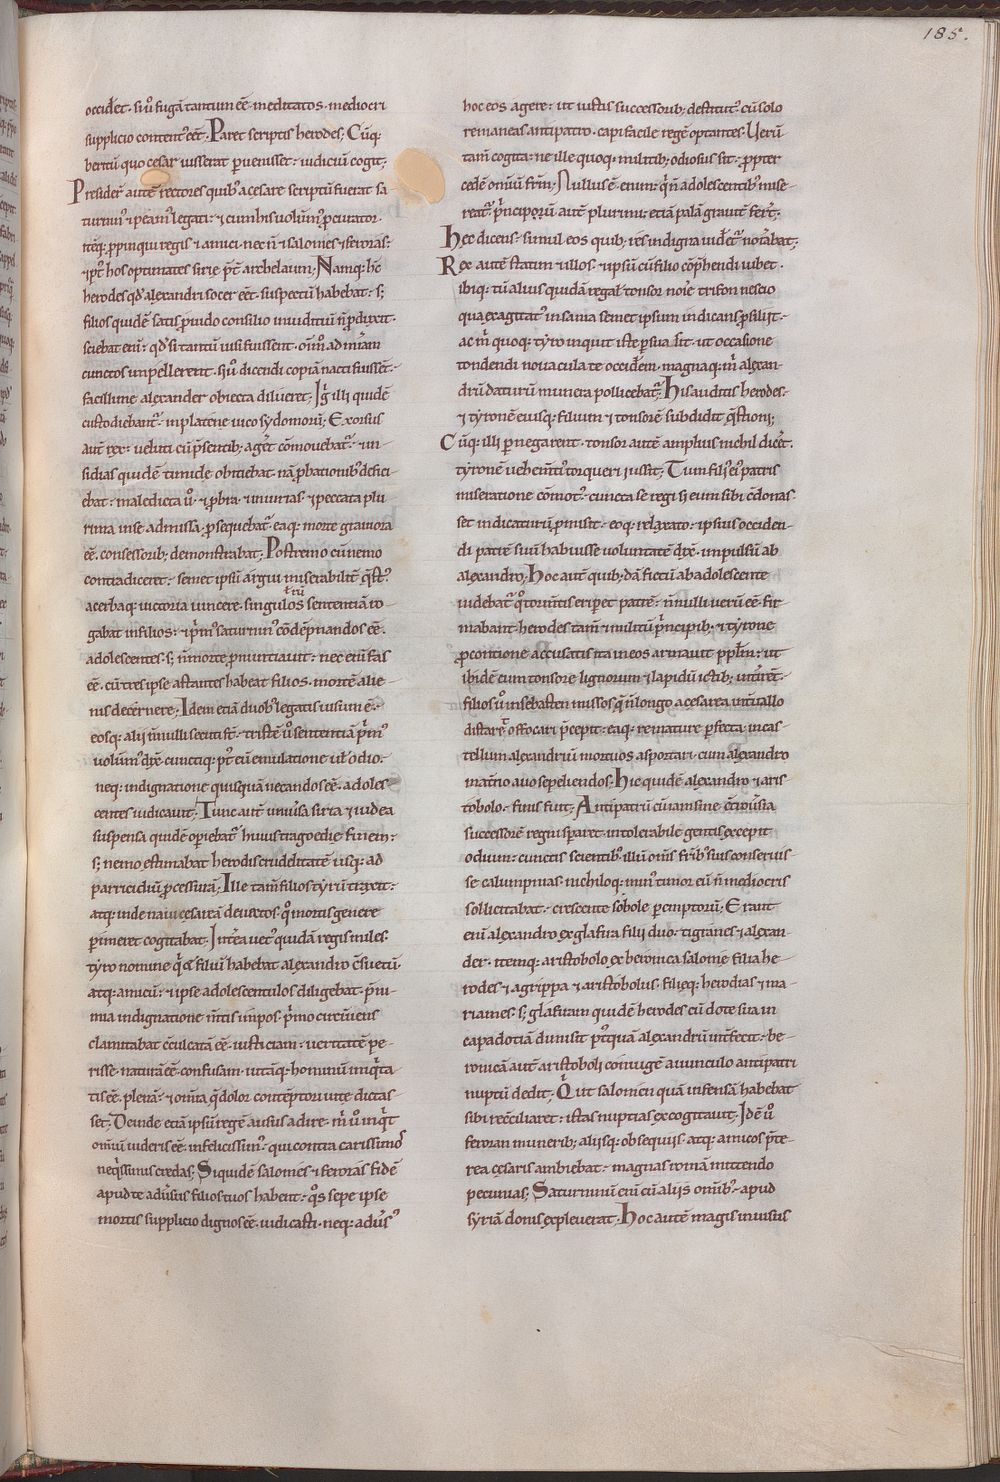 185.
occidet. siū fugā tantum eē meditatos. mediocri
supplicio content᷒ eēt. Paret scriptis herodes; Cūq:
beritū quo cesar iusserat peruenisset. iudiciū cogit;
Presider̄ autē rectores quib᷒ a cesare scriptū fuerat sa
turnin᷒ ⁊ peāni᷒ legati: ⁊ cum his uolūni᷒ p̱curator.
itēq; p̱pinqui regis ⁊ amici. nec n̄ ⁊ salomes ⁊ feroras:
⁊ p᷒t hos optimates sirie. p̄t archelaum; Namq: hc̄
herodes qd̄ alexandri socer eēt. suspectū habebat: s;
filios quidē satis p̱uido consilio in iuditiū n̄ p̱duxit.
sciebat eni: qd̄ si tantū uisi fuissent. om̄s ad mīam
cunctos impellerent. si ū dicendi copiā nacti fuissēt.
facillime alexander obiecta dilueret; Ig̅ illi quidē
custodiebant᷒ in platene uico sydomorū; Exorsus
aut̄ rex: ueluti cū p̄sentib; ageret cōmouebat᷒: in
sidias quidē timide obitiebat. nā p̱bationib᷒ defici
ebat: maledicta ū. ⁊ p̱bra. ⁊ iniurias. ⁊ peccata plu
rima in se admissa p̱sequebat᷒. eaq: morte grauiora
eē. consessorib; demonstrabat; Postremo cū nemo
contradiceret: semet ipsū argui miserabilit̄ q̄st᷒.
acerbaq: uictoria uincere. singulos sententiā ro
gabat in filios: ⁊ p̄m᷒ saturnin᷒ cōdēpnandos eē.
adolescentes. s; n̄ morte p̱nuntiauit: nec enī fas
eē. cū tres ipse astantes habeat filios. mortē alie
nis decernere; Idem etiā duob᷒ legatis uisum ē.
eosq: alii n̄nulli secuti st̄: tristē ū sententiā p̄m᷒
uolumni᷒ dix̄. cunctiq: p᷒t cū emulatione uł odio.
neq: indignatione quisquā necandos eē. adoles
centes iudicauit; Tunc aut̄ uniūsa siria ⁊ iudea
suspensa quidē operiebat᷒ huius tragoedie finem:
s; nemo estimabat herodis crudelitatē usq: ad
parricidiū p̱cessurā; Ille tam̄ filios tyrū traxit:
atq: inde naui cesareā deuectos. q̊ mortis genere
perimeret cogitabat; Int̄ea uet᷒ quidā regis miles.
tyro nomine q̄ cū filiū habebat alexandro c̄suetū.
atq: amicū: ⁊ ipse adolescentulos diligebat. p̄ni
mia indignatione m̄tis impos. p̄mo circūiens
clamitabat c̄culcatā eē. iusticiam: ueritatē pe
risse. naturā eē confusam. uitāq: hominū iniq̄ta
tis eē. plenā: ⁊ om̄ia q̄ dolor contēptori uite dictas
set; Deinde etiā ipsū regē ausus adire. m̄ ū inq̄t
omniū uideris eē. infelicissim᷒. qui contra carissimos
neq̄ssimis credas; Siquidē salomes ⁊ feroras fidē
apud te adūsus filios tuos habent: q̊s sepe ipse
mortis supplicio dignos eē. iudicasti. neq: adūs᷒
hoc eos agere: ut iustis successorib; destitut᷒. cū solo
remaneas antipatro. capi facile regē optantes. Uerū
tam̄ cogita: ne ille quoq: militib; odiosus sit. p̱pter
cedē omniū frm̄; Nullus ē. enim: q̄ n̄ adolescentib᷒ mise
reat᷒. p̄nciporū aut̄ plurimi: etiā palā grauitē fert̄.
Hec dicens. simul eos quib; res indigna uidet᷒ notabat;
Rex autē statim ⁊ illos. ⁊ ipsū cū filio cōp̄hendi iubet.
ibiq: tū alius quidā regał tonsor noīe trifon nescio
qua exagitat᷒ insania semet ipsum indicans p̱silijt.
ac m̄ quoq: tyro inquit iste persuasit. ut occasione
tondendi nouacula te occiderem. magnaq: m̄ alexan
drū daturū munera pollicebat᷒; His auditis herodes.
⁊ tyronē eiusq: filium ⁊ tonsorē subdidit q̄stioni;
Cūq: illi pernegarent. tonsor autē amplius nichil dicēt.
tyronē uehemt̄i᷒ torqueri iussit; Tum fili᷒ ei᷒ patris
miseratione cōmot᷒. cuncta se regi si eum sibi c̄donas
set indicaturū p̱misit. eoq: relaxato: ipsius occiden
di patrē suū habuisse uoluntatē dix̄. impulsū ab
alexandro; Hoc aut̄ quib;dā fictū ab adolescente
uidebat᷒ q̊ torm̄tis eriperet patrē: n̄nulli uerū eē. fir
mabant. herodes tam̄ ⁊ militū p̄ncipib; ⁊ tyrone
p̱ contione accusatis ita in eos armauit pp̱lm̄: ut
ibidē eum tonsore lignorum ⁊ lapidū ictib; int̄irēt.
filios ū in sebasten missos q̄ n̄ longo a cesarea int̄uallo
distaret᷒. offocari p̄cepit: eaq: re mature perfecta. in cas
tellum alexandriū mortuos asportari. cum alexandro
materno auo sepeliendos; Hic quidē alexandro ⁊ aris
tobolo. finis fuit; Antipatrū c̄ iam sine c̄trouersia
successorē regni sparet. intolerabile gentis excepit
odium: cunctis scientib᷒ illū om̄s frīb᷒ suis conseruis
se calumpnias. nichiloq; min᷒ timor eū n̄ mediocris
sollicitabat. crescente sobole peremptorū; Erant
enī alexandro ex glafira filii duo. tigranes. ⁊ alexan
der. itemq: aristobolo ex beronica salome filia he
rodes ⁊ agrippa ⁊ aristobolus. filieq: herodias ⁊ ma
riames. s; glafiram quidē herodes cū dote sua in
capadotiā dimisit p᷒tquā alexandrū int̄fecit. be
ronicā aut̄ aristoboli coniugē auunculo antipatri
nuptū dedit; Q̄ ut salomen quā infensā habebat
sibi rec̄ciliaret: istas nuptias excogitauit; Idē ū
feroran munerib; alijsq: obsequijs. atq: amicos p̄te
rea cesaris ambiebat: magnas romā mittendo
pecunias; Saturninū enī cū alijs omīb᷒. apud
syriā donis expleuerat; Hoc autē magis inuisus